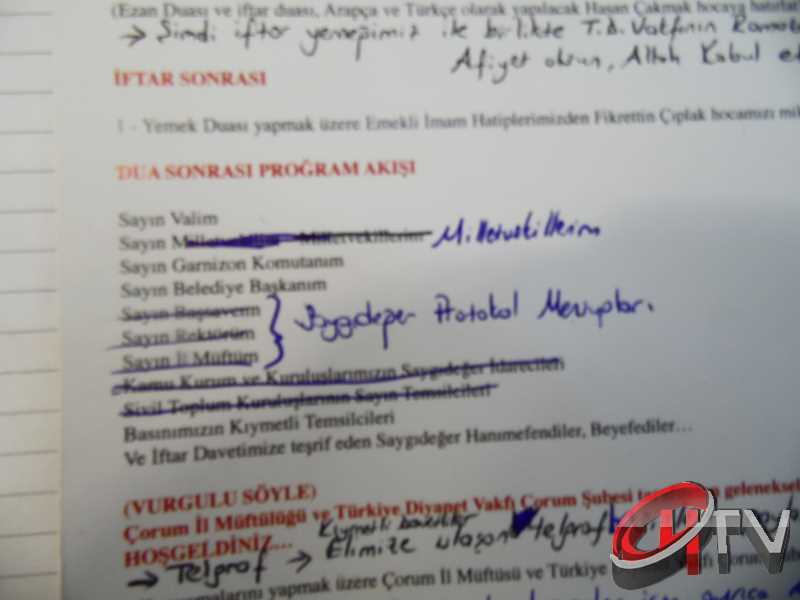 (Ezan Duası ve iftar duası, Arapça ve Türkçe olarak yapılacak Hasan Çakmak hocaya hatırlat
→ Şimdi iftar yemeğimiz ile birlikte T.D. Vakfının
Afiyet olsun, Allah Kabul
İFTAR SONRASI
1 - Yemek Duası yapmak üzere Emekli İmam Hatiplerimizden Fikrettin Çıplak hocamızı
DUA SONRASI PROĞRAM AKIŞI
Sayın Valim
Sayın Milletvekillerim Milletvekillerim
Sayın Garnizon Komutanım
Sayın Belediye Başkanım
Sayın Başsavcım
Sayın Rektörüm } Saygıdeğer Protokol Mensupları,
Sayın İl Müftüm
Kamu Kurum ve Kuruluşlarımızın Saygıdeğer İdarecileri
Sivil Toplum Kuruluşlarının Sayın Temsilcileri
Basınımızın Kıymetli Temsilcileri
Ve İftar Davetimize teşrif eden Saygıdeğer Hanımefendiler, Beyefediler…
(VURGULU SÖYLE)
Çorum İl Müftülüğü ve Türkiye Diyanet Vakfı Çorum Şubesi
HOŞGELDİNİZ…
Kıymetli
→ Telgraf → Elimize ulaşan telgraf
yapmak üzere Çorum İl Müftüsü ve Türkiye
HTV